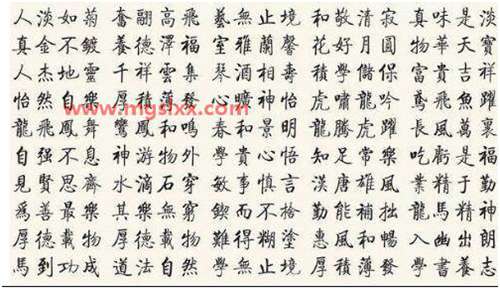 人淡如菊 奮翮高飛 藝無止境 和敬清寂 真味是淡
真金不鍍 養德澤福 室雅蘭馨 花好月圓 物華天寶
人杰地靈 千祥雲集 琴酒相壽 學儲保 富貴吉祥
怡然自樂 厚積薄發 心曠神怡 虎嘯龍吟 鳶飛魚躍
www.mgslxx.com
龍飛鳳舞 鸞鳳和鳴 春和景明 龍騰虎躍 長風萬裏
自强不息 神游物外 學貴心悟 知足常樂 吃虧是福
見賢思齊 水滴石穿 敏事慎言 漢唐雄風 業精于勤
爲善最樂 其樂無窮 鍥而不捨 勤能補拙 龍馬精神
厚德載物 厚德載物 難得糊塗 惠風和暢 入幽出朗
馬到功成 道法自然 學無止境 厚積薄發 學書養志